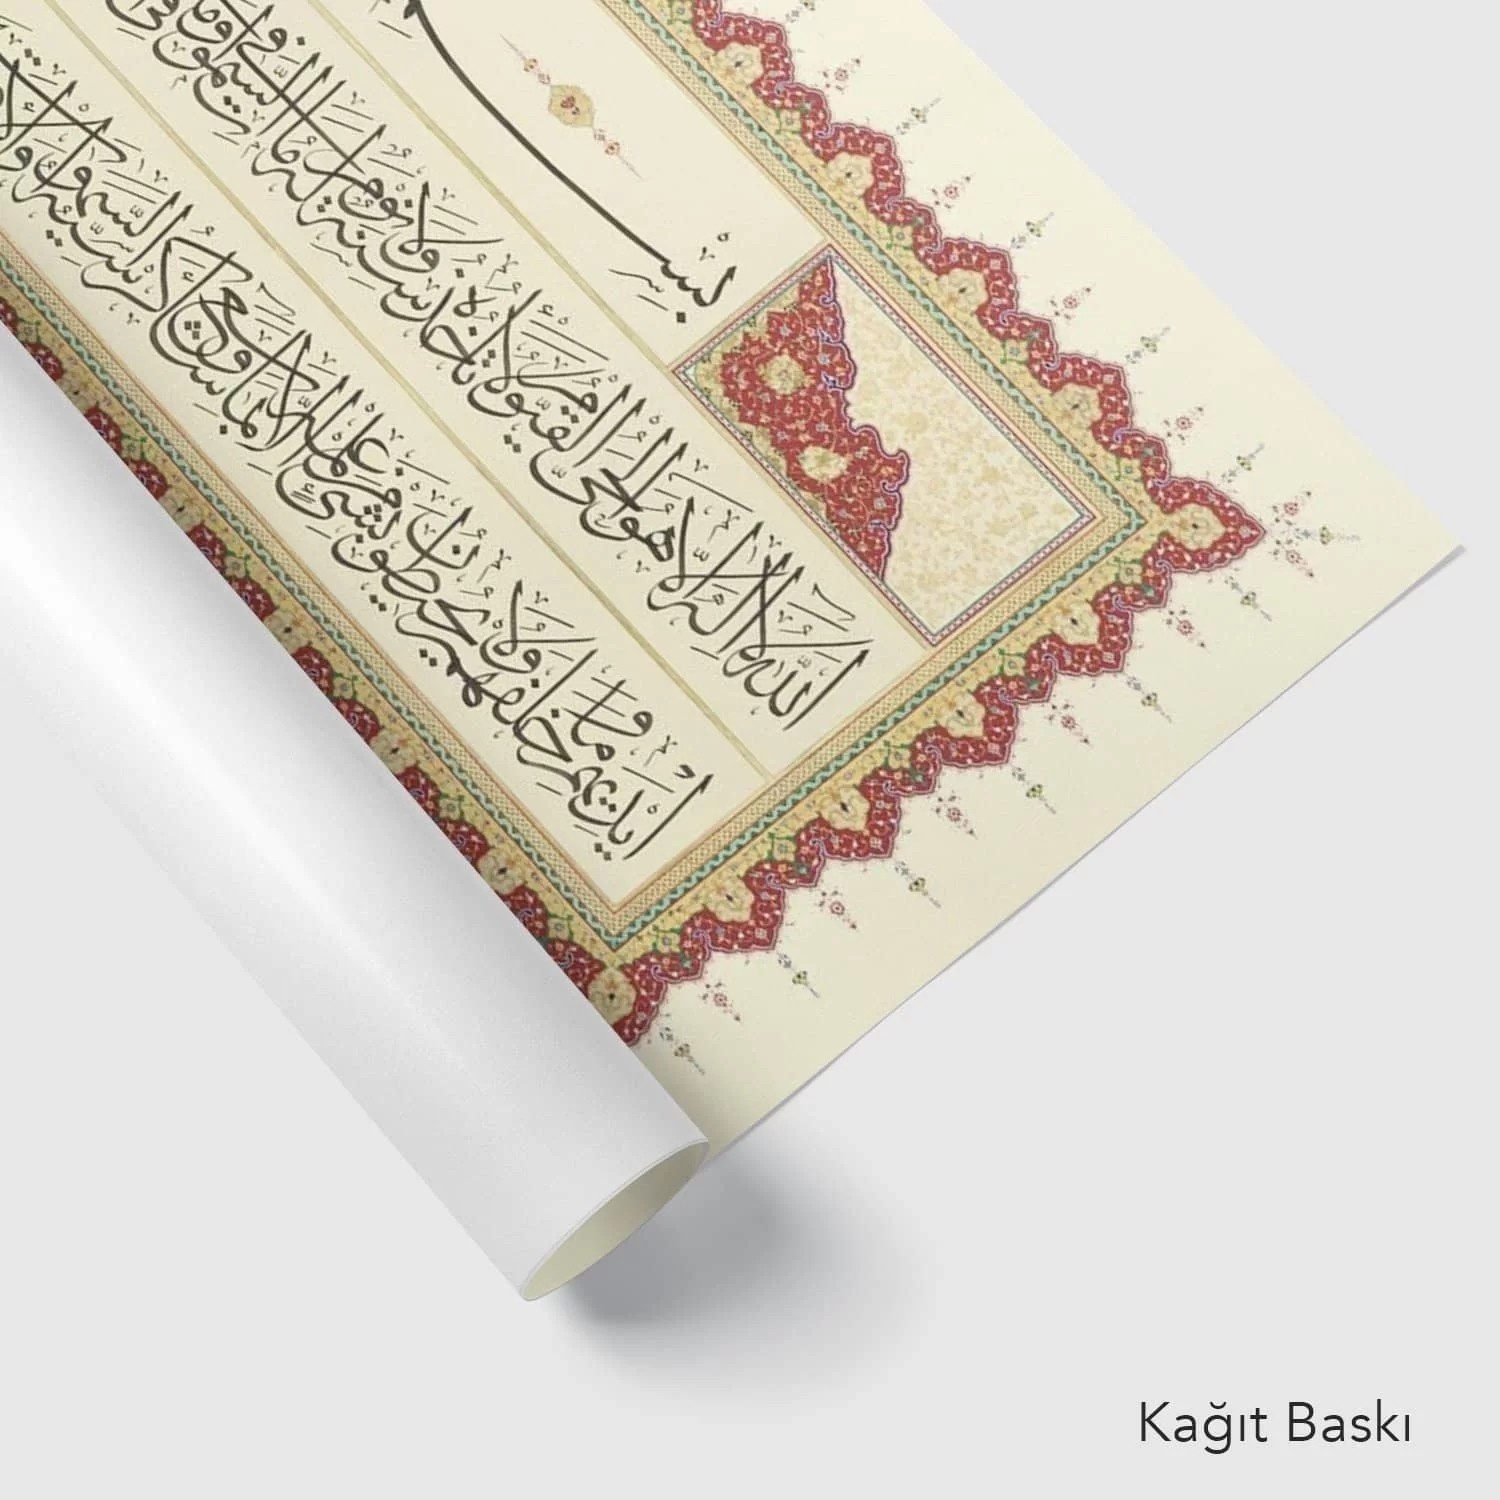 بِسْمِ
اَللّٰهُ لَا اِلٰهَ اِلَّا هُوَ الْحَىُّ الْقَيُّومُ لَا تَأْخُذُهُ سِنَةٌ وَلَا نَوْمٌ لَهُ مَا فِى السَّمٰوَاتِ وَمَا فِى
اَيْدِيهِمْ وَمَا خَلْفَهُمْ وَلَا يُحِيطُونَ بِشَىْءٍ مِنْ عِلْمِهِ اِلَّا بِمَا شَاءَ وَسِعَ كُرْسِيُّهُ السَّمٰوَاتِ
Kağıt Baskı